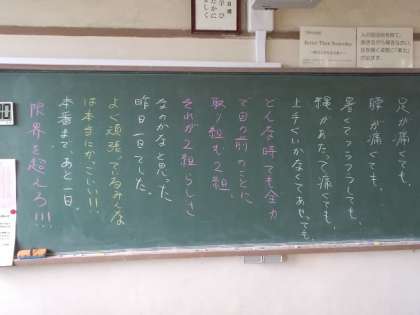 足が痛くても、
腰が痛くても、
暑くてフラフラしても、
縄があたって痛くても、
上手くいかなくてあせっても、
どんな時でも全力
で目の前のことに
取り組む2組。
それが2組らしさ
なのかなと思った
昨日一日でした。
よく頑張っているみんな
は本当にかっこいい!!
本番まで、あと一日。
限界を超えろ!!!
Better Than Yesterday